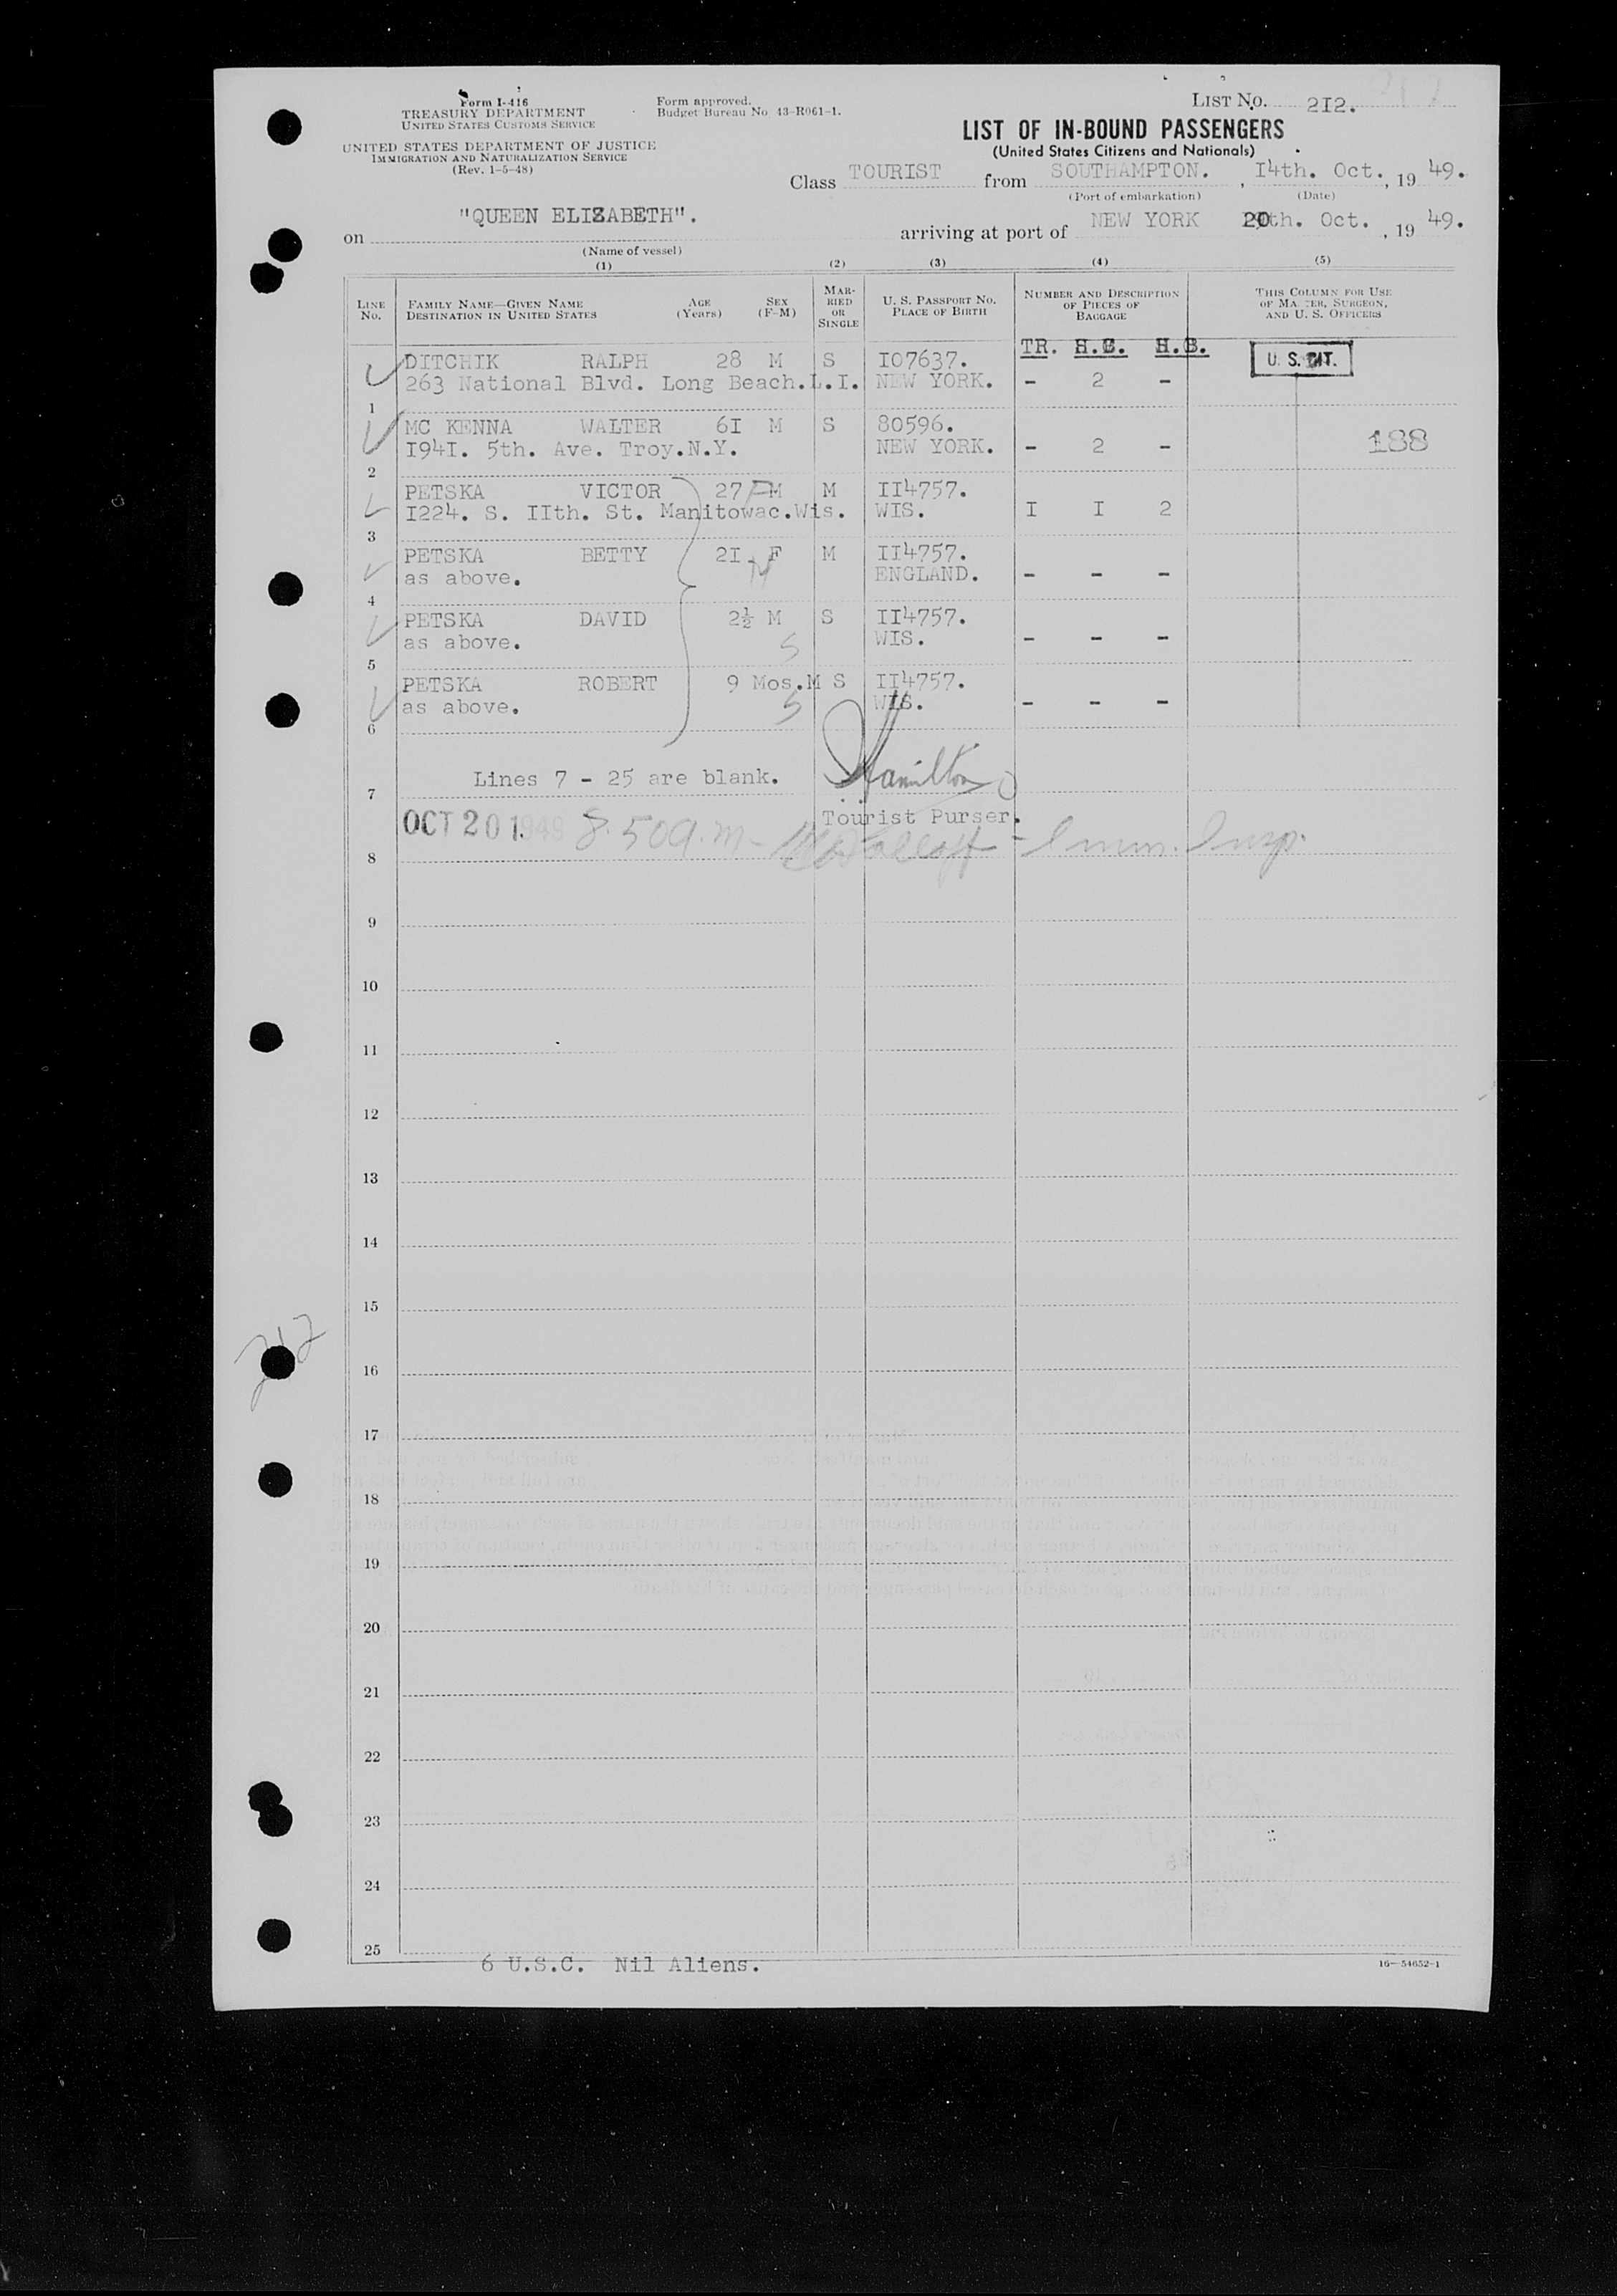 Form I-416
TREASURY DEPARTMENT
UNITED STATES CUSTOMS SERVICE
UNITED STATES DEPARTMENT OF JUSTICE
IMMIGRATION AND NATURALIZATION SERVICE
(Rev. 1-5-48)
Form approved.
Budget Bureau No. 43-R061-1.
LIST NO. 2I2.
LIST OF IN-BOUND PASSENGERS
(United States Citizens and Nationals)
Class TOURIST from SOUTHAMPTON. , I4th. Oct. , 19 49.
(Port of embarkation) (Date)
on "QUEEN ELIZABETH". arriving at port of NEW YORK 20th. Oct. , 19 49.
(Name of vessel)
(1) (2) (3) (4) (5)
LINE NO. FAMILY NAME—GIVEN NAME DESTINATION IN UNITED STATES AGE (Years) SEX (F-M) MARRIED OR SINGLE U. S. PASSPORT NO. PLACE OF BIRTH NUMBER AND DESCRIPTION OF PIECES OF BAGGAGE THIS COLUMN FOR USE OF MASTER, SURGEON, AND U. S. OFFICERS
TR. H.B.
DITCHIK RALPH 28 M S I07637. U. S. CIT.
263 National Blvd. Long Beach.L.I. NEW YORK. - 2 -
1
MC KENNA WALTER 6I M S 80596.
I94I. 5th. Ave. Troy.N.Y. NEW YORK. - 2 - 188
2
PETSKA VICTOR 27 M M II4757.
I224. S. IIth. St. Manitowac.Wis. WIS. I I 2
3
PETSKA BETTY 2I F M II4757.
as above. ENGLAND. - - -
4
PETSKA DAVID 2½ M S II4757.
as above. WIS. - - -
S
5
PETSKA ROBERT 9 Mos.M S II4757.
as above. WIS. - - -
S
6
Lines 7 - 25 are blank. Hamilton
7
Tourist Purser.
OCT 20 1949 8.50 a.m - Imm. Insp.
8
9
10
11
12
13
14
15
212
16
17
18
19
20
21
22
23
24
25
6 U.S.C. Nil Aliens.
16—54652-1